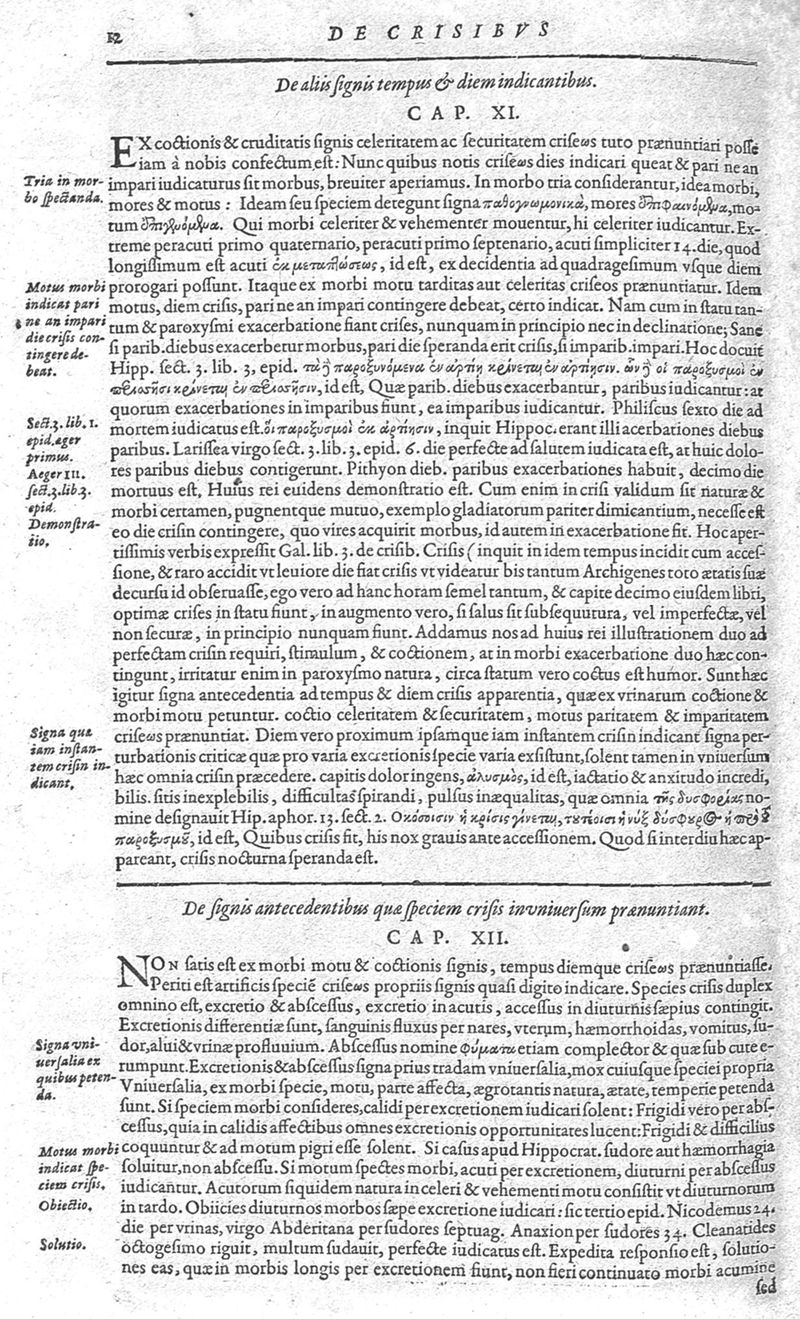 12
DE CRISIBVS
De aliis signis tempus & diem indicantibus.
CAP. XI.
EX coctionis & cruditatis signis celeritatem ac securitatem criseωs tuto prænuntiari posse
iam à nobis confectum est: Nunc quibus notis criseωs dies indicari queat & pari ne an
impari iudicaturus sit morbus, breuiter aperiamus. In morbo tria considerantur, idea morbi,
mores & motus : Ideam seu speciem detegunt signa παθογνωμονικὰ, mores ἐπιφαινόμενα, mo-
tum ἐπιγινόμενα. Qui morbi celeriter & vehementer mouentur, hi celeriter iudicantur. Ex-
treme peracuti primo quaternario, peracuti primo septenario, acuti simpliciter 14. die, quod
longissimum est acuti ἐκ μεταπλώσεως, id est, ex decidentia ad quadragesimum vsque diem
prorogari possunt. Itaque ex morbi motu tarditas aut celeritas criseos prænuntiatur. Idem
motus, diem crisis, pari ne an impari contingere debeat, certo indicat. Nam cum in statu tan-
tum & paroxysmi exacerbatione fiant crises, nunquam in principio nec in declinatione; Sane
si parib. diebus exacerbetur morbus, pari die speranda erit crisis, si imparib. impari. Hoc docuit
Hipp. sect. 3. lib. 3, epid. τὰ ἢ παροξυνόμενα ἐν ἀρτίῃ κρίνεται ἐν ἀρτίησιν. ὧν ἢ οἱ παροξυσμοὶ ἐν
περισσῇσι κρίνεται ἐν περισσῇσιν, id est, Quæ parib. diebus exacerbantur, paribus iudicantur: at
quorum exacerbationes in imparibus fiunt, ea imparibus iudicantur. Philiscus sexto die ad
mortem iudicatus est. οἱ παροξυσμοὶ ἐκ ἀρτίησιν, inquit Hippoc. erant illi acerbationes diebus
paribus. Larissea virgo sect. 3. lib. 3. epid. 6. die perfecte ad salutem iudicata est, at huic dolo-
res paribus diebus contigerunt. Pithyon dieb. paribus exacerbationes habuit, decimo die
mortuus est, Huius rei euidens demonstratio est. Cum enim in crisi validum sit naturæ &
morbi certamen, pugnentque mutuo, exemplo gladiatorum pariter dimicantium, necesse est
eo die crisin contingere, quo vires acquirit morbus, id autem in exacerbatione fit. Hoc aper-
tissimis verbis expressit Gal. lib. 3. de crisib. Crisis ( inquit in idem tempus incidit cum acces-
sione, & raro accidit vt leuiore die fiat crisis vt videatur bis tantum Archigenes toto ætatis suæ
decursu id obseruasse, ego vero ad hanc horam semel tantum, & capite decimo eiusdem libri,
optimæ crises in statu fiunt, in augmento vero, si salus sit subsequutura, vel imperfectæ, vel
non securæ, in principio nunquam fiunt. Addamus nos ad huius rei illustrationem duo ad
perfectam crisin requiri, stimulum, & coctionem, at in morbi exacerbatione duo hæc con-
tingunt, irritatur enim in paroxysmo natura, circa statum vero coctus est humor. Sunt hæc
igitur signa antecedentia ad tempus & diem crisis apparentia, quæ ex vrinarum coctione &
morbi motu petuntur. coctio celeritatem & securitatem, motus paritatem & imparitatem
criseωs prænuntiat. Diem vero proximum ipsamque iam instantem crisin indicant signa per-
turbationis criticæ quæ pro varia excretionis specie varia existunt, solent tamen in vniuersum
hæc omnia crisin præcedere. capitis dolor ingens, ἀλυσμὸς, id est, iactatio & anxitudo incredi,
bilis. sitis inexplebilis, difficultas spirandi, pulsus inæqualitas, quæ omnia τῆς δυσφορίας no-
mine designauit Hip. aphor. 13. sect. 2. Οκόσοισιν ἡ κρίσις γίνεται, τουτέοισι ἡ νὺξ δύσφορος ἡ πρὸ τοῦ
παροξυσμοῦ, id est, Quibus crisis fit, his nox grauis ante accessionem. Quod si interdiu hæc ap-
pareant, crisis nocturna speranda est.
Tria in mor-
bo spectanda.
Motus morbi
indicat pari
ne an impari
die crisis con-
tingere de-
beat.
Sect. 3. lib. 1.
epid. æger
primus.
Aeger III.
sect. 3. lib 3.
epid.
Demonstra-
tio.
Signa quæ
iam instan-
tem crisin in-
dicant.
De signis antecedentibus quæ speciem crisis in vniuersum prænuntiant.
CAP. XII.
NON satis est ex morbi motu & coctionis signis, tempus diemque criseωs prænuntiasse.
Periti est artificis speciē criseωs propriis signis quasi digito indicare. Species crisis duplex
omnino est, excretio & abscessus, excretio in acutis, accessus in diuturnis sæpius contingit.
Excretionis differentiæ sunt, sanguinis fluxus per nares, vterum, hæmorrhoidas, vomitus, su-
dor, alui & vrinæ profluuium. Abscessus nomine φύματα etiam complector & quæ sub cute e-
rumpunt. Excretionis & abscessus signa prius tradam vniuersalia, mox cuiusque speciei propria
Vniuersalia, ex morbi specie, motu, parte affecta, ægrotantis natura, ætate, temperie petenda
sunt. Si speciem morbi consideres, calidi per excretionem iudicari solent: Frigidi vero per abs-
cessus, quia in calidis affectibus omnes excretionis opportunitates lucent: Frigidi & difficilius
coquuntur & ad motum pigri esse solent. Si casus apud Hippocrat. sudore aut hæmorrhagia
soluitur, non abscessu. Si motum spectes morbi, acuti per excretionem, diuturni per abscessus
iudicantur. Acutorum siquidem natura in celeri & vehementi motu consistit vt diuturnorum
in tardo. Obiicies diuturnos morbos sæpe excretione iudicari: sic tertio epid. Nicodemus 24.
die per vrinas, virgo Abderitana per sudores septuag. Anaxion per sudores 34. Cleanatides
octogesimo riguit, multum sudauit, perfecte iudicatus est. Expedita responsio est, solutio-
nes eas, quæ in morbis longis per excretionem fiunt, non fieri continuato morbi acumine
sed
Signa vni-
uersalia ex
quibus peten-
da.
Motus morbi
indicat spe-
ciem crisis.
Obiectio.
Solutio.